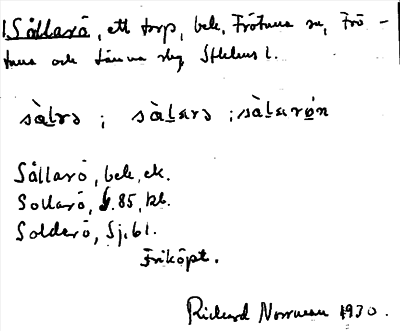 Sållarö, ett torp, bek. Frötuna sn, Frö-
tuna och Länna skg, Sthlms l.
sàl̲rə ; sàl̲arə ; sàl̲arøn
Sållarö, bek, ek.
Sollarö, J. 85, kb.
Solderö, Sj. bl.
Friköpt.
Rickard 1930.